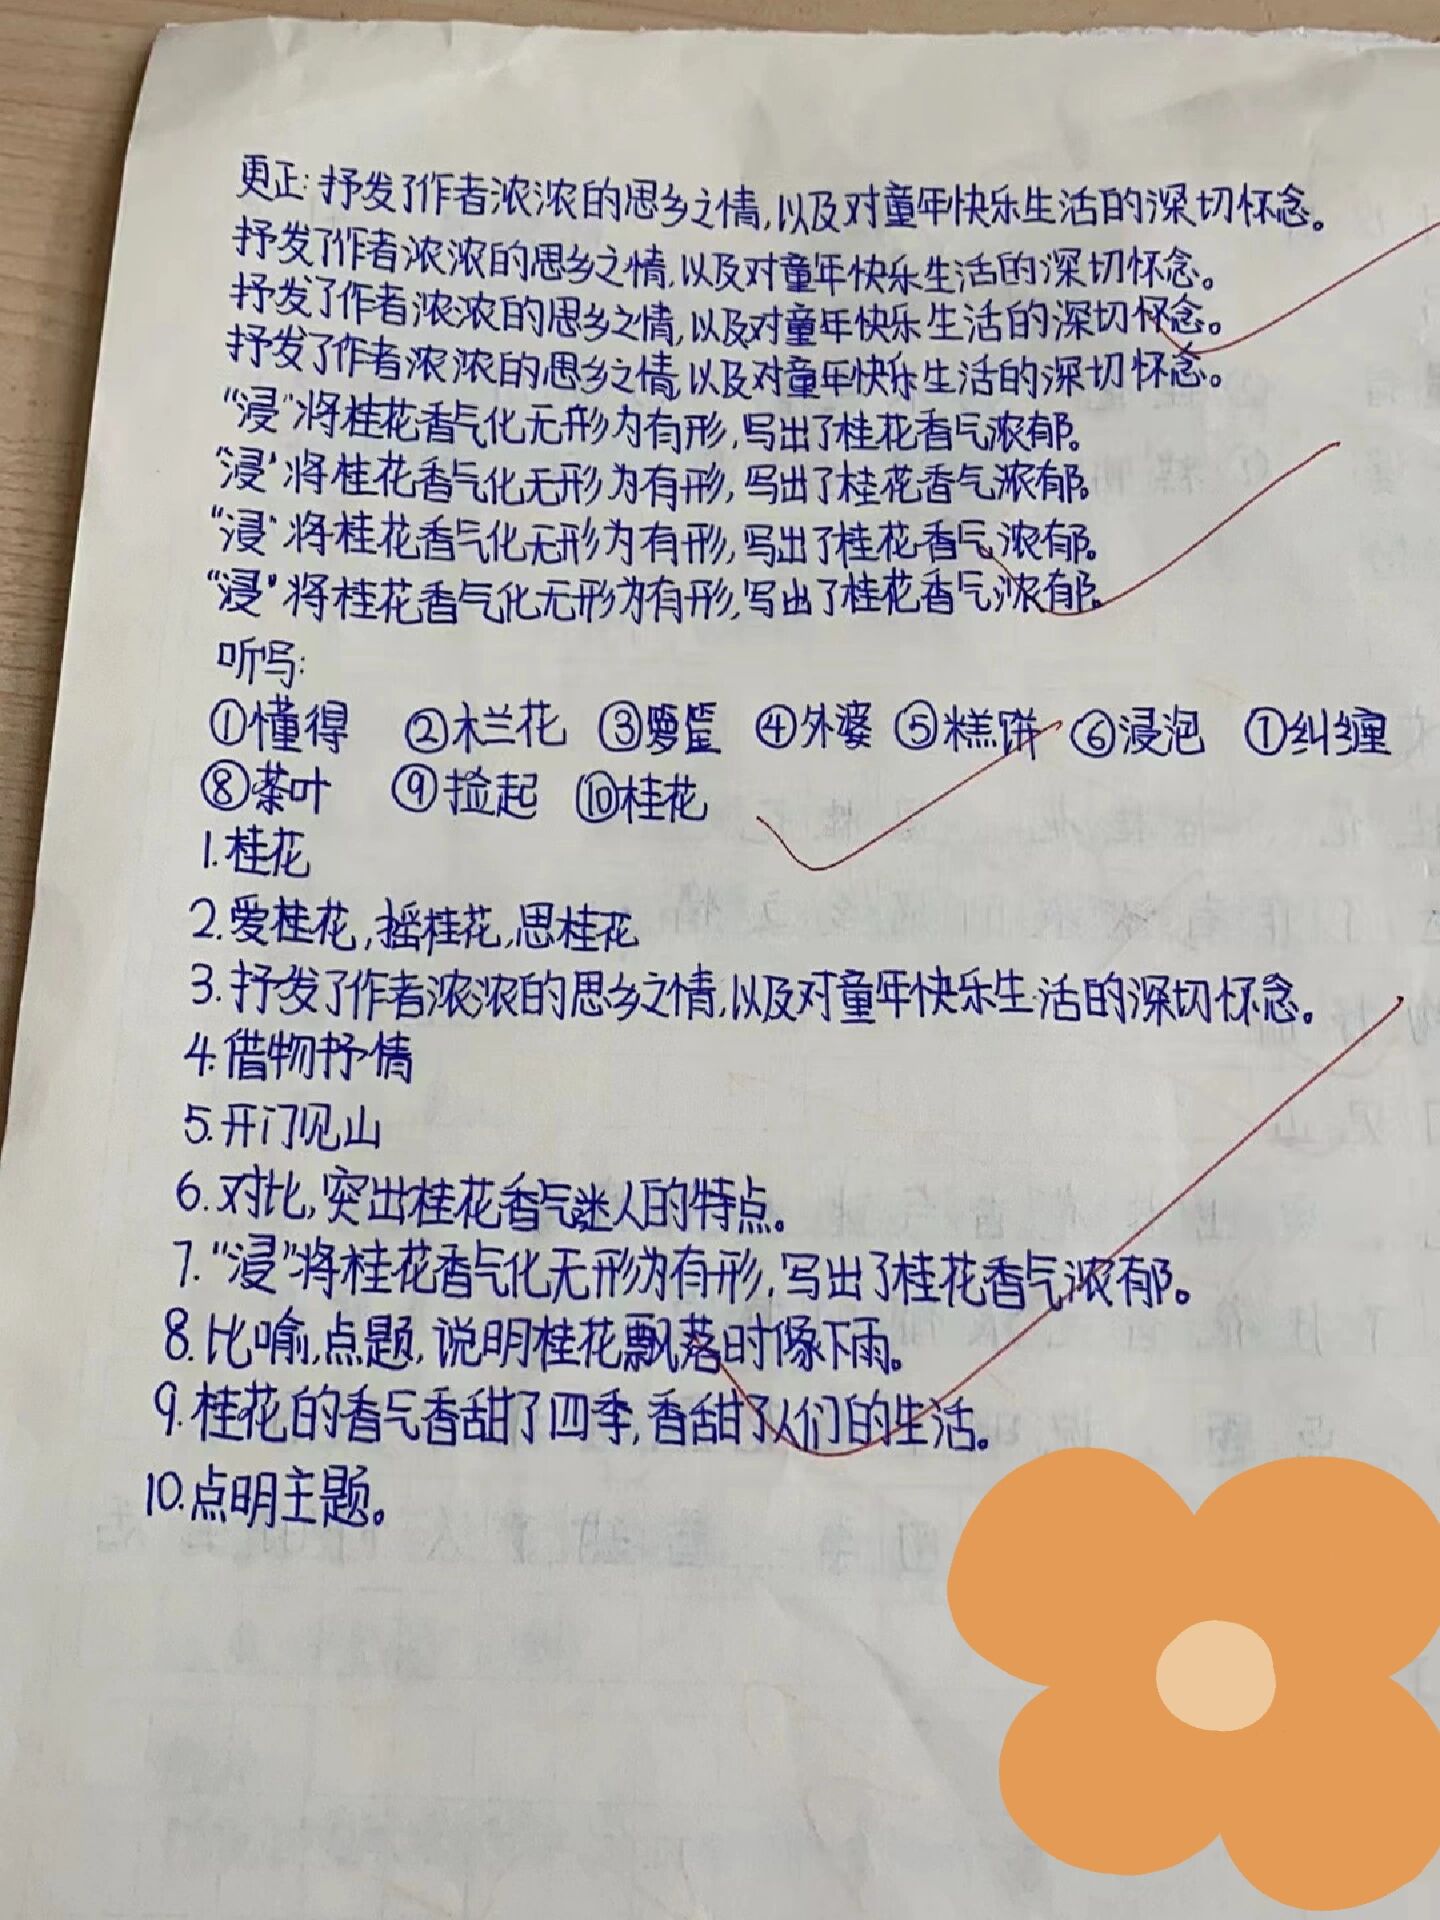 更正:抒发了作者浓浓的思乡之情,以及对童年快乐生活的深切怀念。
抒发了作者浓浓的思乡之情,以及对童年快乐生活的深切怀念。
抒发了作者浓浓的思乡之情,以及对童年快乐生活的深切怀念。
抒发了作者浓浓的思乡之情,以及对童年快乐生活的深切怀念。
“浸”将桂花香气化无形为有形,写出了桂花香气浓郁。
“浸”将桂花香气化无形为有形,写出了桂花香气浓郁。
“浸”将桂花香气化无形为有形,写出了桂花香气浓郁。
“浸”将桂花香气化无形为有形,写出了桂花香气浓郁。
听写:
①懂得 ②木兰花 ③箩筐 ④外婆 ⑤糕饼 ⑥浸泡 ①纠缠
⑧茶叶 ⑨捡起 ⑩桂花
1.桂花
2.爱桂花,摇桂花,思桂花
3.抒发了作者浓浓的思乡之情,以及对童年快乐生活的深切怀念。
4.借物抒情
5.开门见山
6.对比,突出桂花香气迷人的特点。
7.“浸”将桂花香气化无形为有形,写出了桂花香气浓郁。
8.比喻,点题,说明桂花飘落时像下雨。
9.桂花的香气香甜了四季,香甜了人们的生活。
10.点明主题。